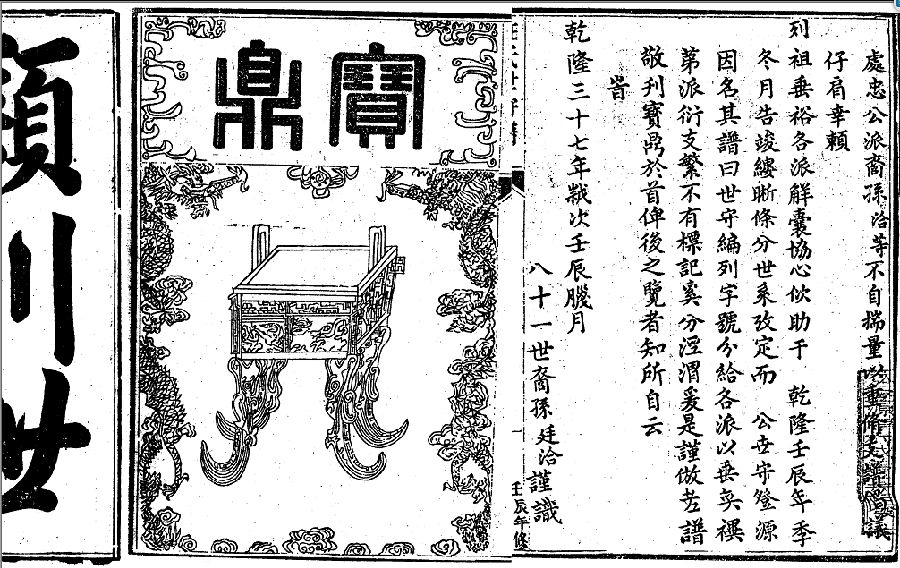 處忠公派裔孫洽等不自揣量以重脩支譜
仔肩幸賴
列祖垂裕各派解囊協心佽助于 乾隆壬辰年季
冬月告竣縷晰條分世系攷定而 公世守登源
因名其譜曰世守編列字號分給各派以垂奕禩
第派衍支繁不有標記奚分涇渭爰是謹倣老譜
敬刊寶鼎於首俾後之覽者知所自云
峕
乾隆三十七年歲次壬辰臘月
八十一世裔孫廷洽謹識
壬辰年修
寶鼎
潁川世